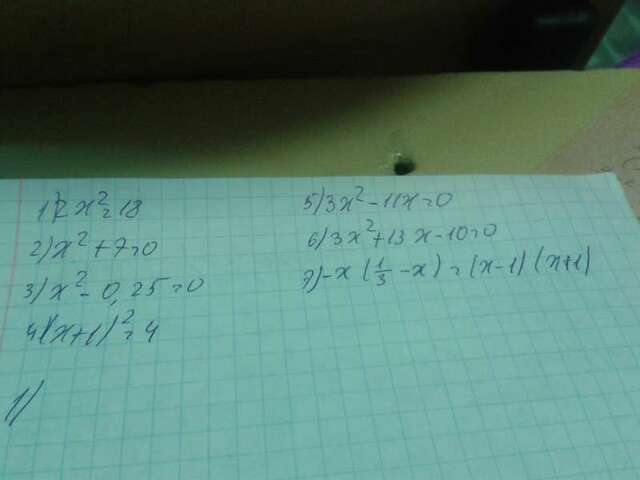 1) 2x² = 18
2) x² + 7 = 0
3) x² - 0,25 = 0
4) (x+1)² = 4
5) 3x² - 11x = 0
6) 3x² + 13x - 10 = 0
7) -x (1/3 - x) = (x-1) (x+1)
1)